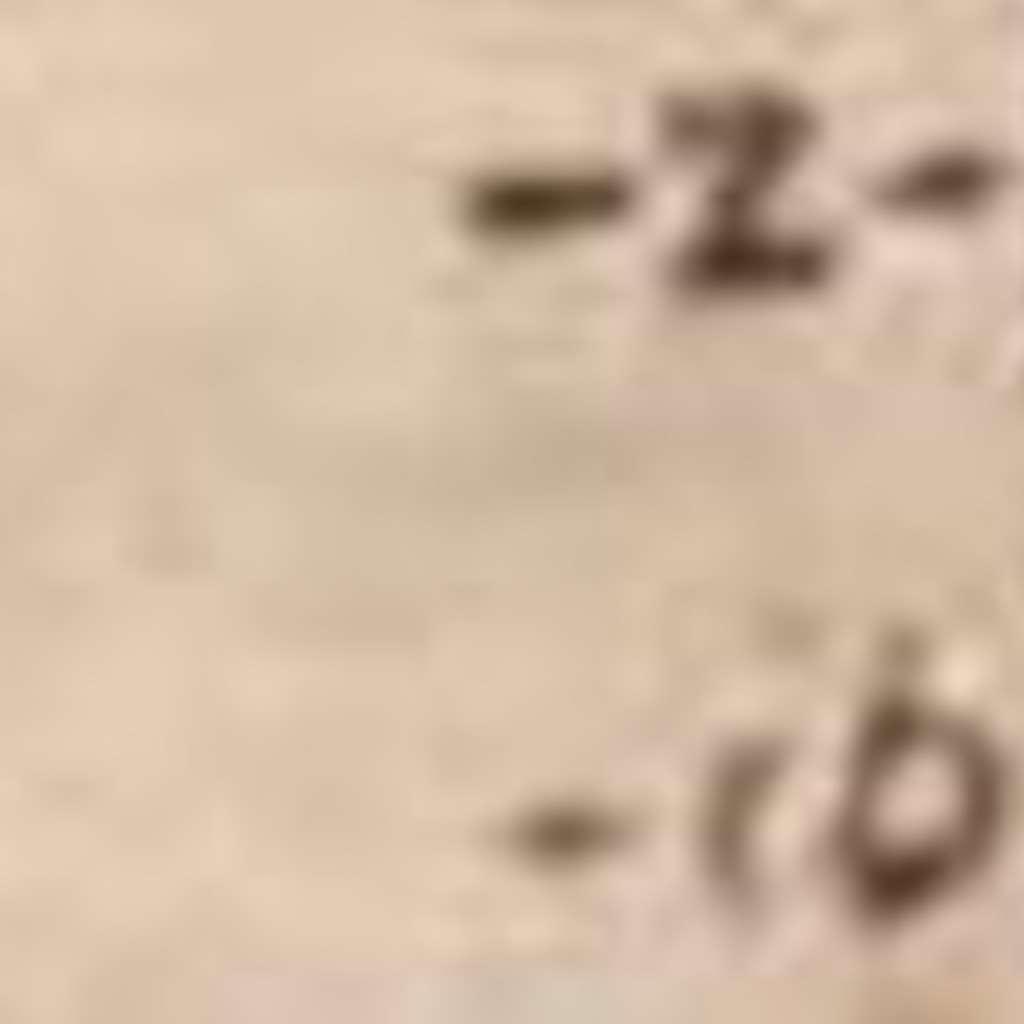 - 2 -
- 10